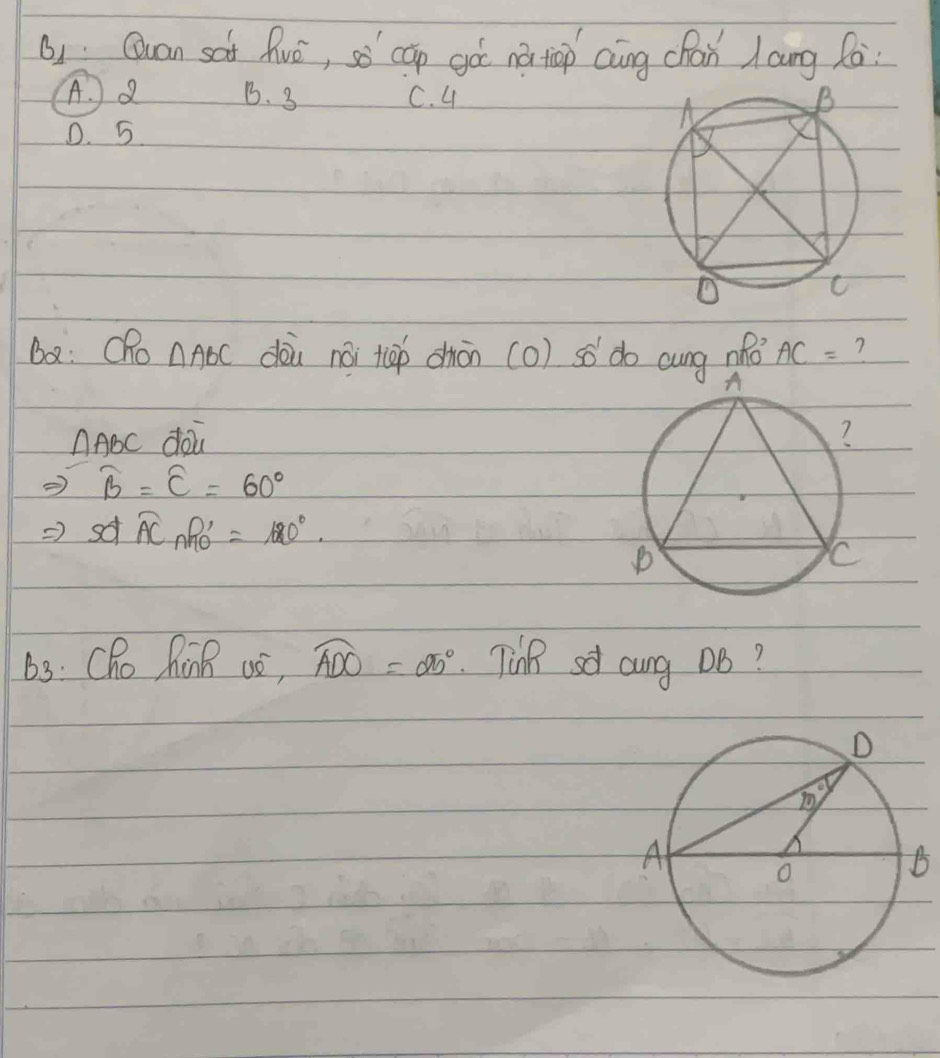 B1: Quan sát hvẽ, số cặp góc nội tiếp cùng chắn 1 cung là:
A. 2 B. 3 C. 4
D. 5
A B
D C
B2: Cho ΔABC đều nội tiếp đtròn (O) số đo cung nhỏ AC = ?
A
?
ΔABC đều
⇒ B̂ = Ĉ = 60°
⇒ sđ AC nhỏ = 120°.
B C
B3: Cho hình vẽ, ADO = 25°. Tính sđ cung DB ?
D
A O B